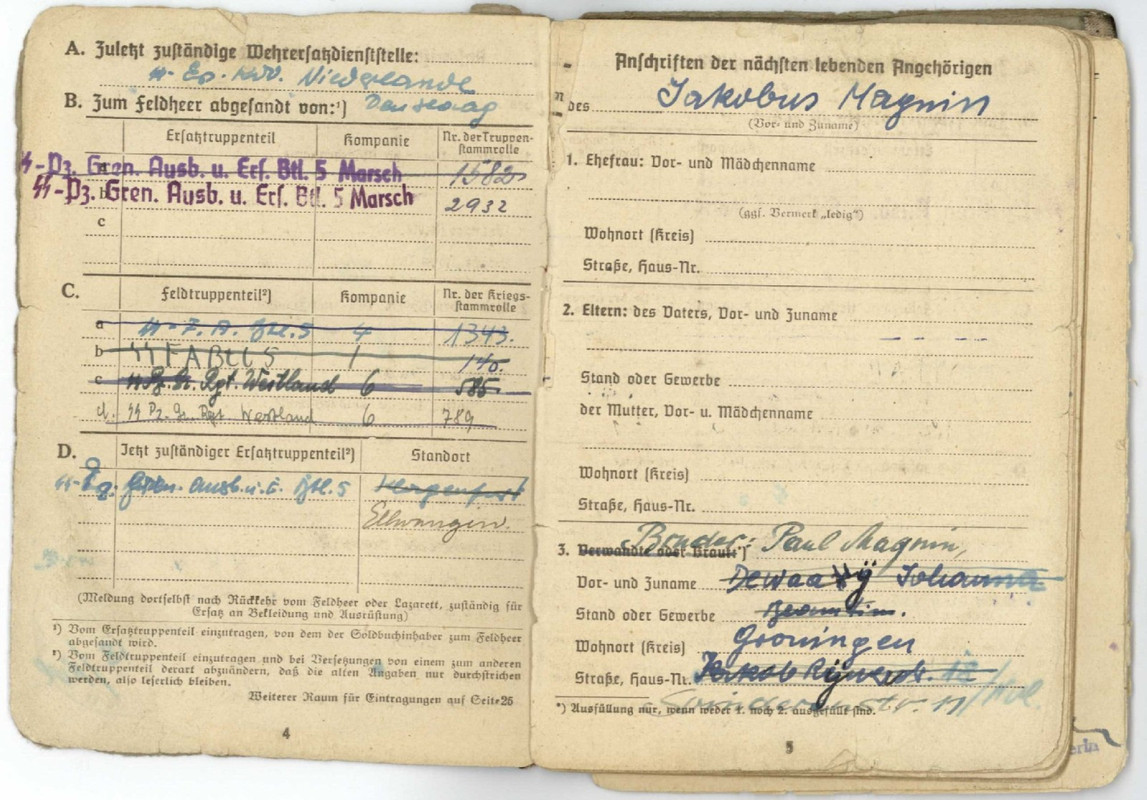 A. Zuletzt zuständige Wehrersatzdienststelle:
Niederlande
B. Zum Feldheer abgesandt von:¹)
Den Haag
Ersatztruppenteil Kompanie Nr. der Truppen-
stammrolle
a ᛋᛋ-Pz. Gren. Ausb. u. Ers. Btl. 5 Marsch 1582
b ᛋᛋ-Pz. Gren. Ausb. u. Ers. Btl. 5 Marsch 2932
c
C.
Feldtruppenteil²) Kompanie Nr. der Kriegs-
stammrolle
a 4 1343.
b 1
c ᛋᛋ Pz. Gr. Rgt. Westland 6 585.
d. ᛋᛋ Pz. Gr. Rgt Westland 6 789
D. Jetzt zuständiger Ersatztruppenteil²) Standort
Ausb. u. E. Btl. 5
Ellwangen.
(Meldung dortselbst nach Rückkehr vom Feldheer oder Lazarett, zuständig für
Ersatz an Bekleidung und Ausrüstung)
¹) Vom Ersatztruppenteil einzutragen, von dem der Soldbuchinhaber zum Feldheer
abgesandt wird.
²) Vom Feldtruppenteil einzutragen und bei Versetzungen von einem zum anderen
Feldtruppenteil derart abzuändern, daß die alten Angaben nur durchstrichen
werden, also leserlich bleiben.
Weiterer Raum für Eintragungen auf Seite 25
4
Anschriften der nächsten lebenden Angehörigen
des Jakobus Magnin
(Vor- und Zuname)
1. Ehefrau: Vor- und Mädchenname
(ggf. Vermerk „ledig“)
Wohnort (Kreis)
Straße, Haus-Nr.
2. Eltern: des Vaters, Vor- und Zuname
Stand oder Gewerbe
der Mutter, Vor- u. Mädchenname
Wohnort (Kreis)
Straße, Haus-Nr.
Bruder: Paul Magnin,
3. Verwandte oder Braut*)
Vor- und Zuname Johanna
Stand oder Gewerbe
Wohnort (Kreis) Groningen
Straße, Haus-Nr.
*) Ausfüllung nur, wenn weder 1. noch 2. ausgefüllt sind.
5